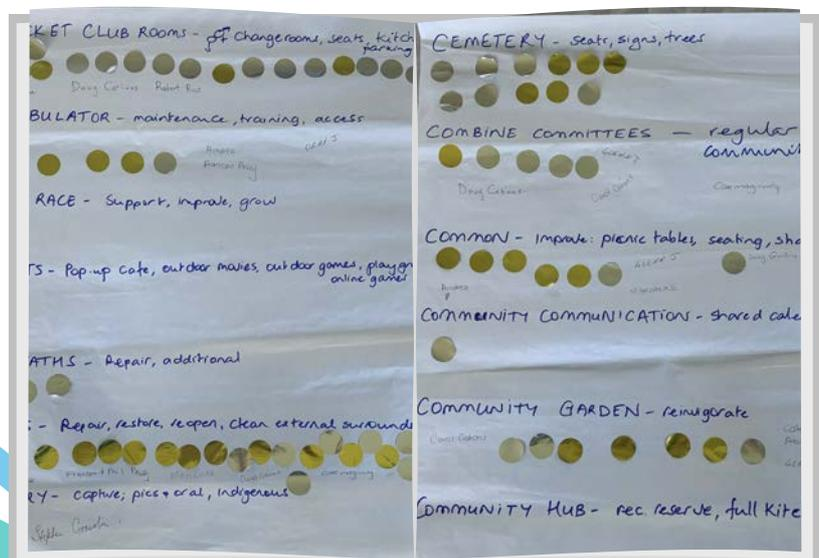 KET CLUB ROOMS - Changerooms, seats, kitch
parking
Doug Robert
BULATOR - maintenance, training, access
Andrea
RACE - Support, improve, grow
TS - Pop-up cafe, outdoor movies, outdoor games, playgr
online games
ATHS - Repair, additional
- Repair, restore, reopen, clean external surrounds
RY - capture; pics + oral, Indigenous
CEMETERY - seats, signs, trees
COMBINE COMMITTEES - regular
communi
Doug
COMMON - Improve: picnic tables, seating, sha
GLENN J
Andrea
COMMUNITY COMMUNICATION - shared cale
COMMUNITY GARDEN - reinvigorate
COMMUNITY HUB - rec. reserve, full kitc